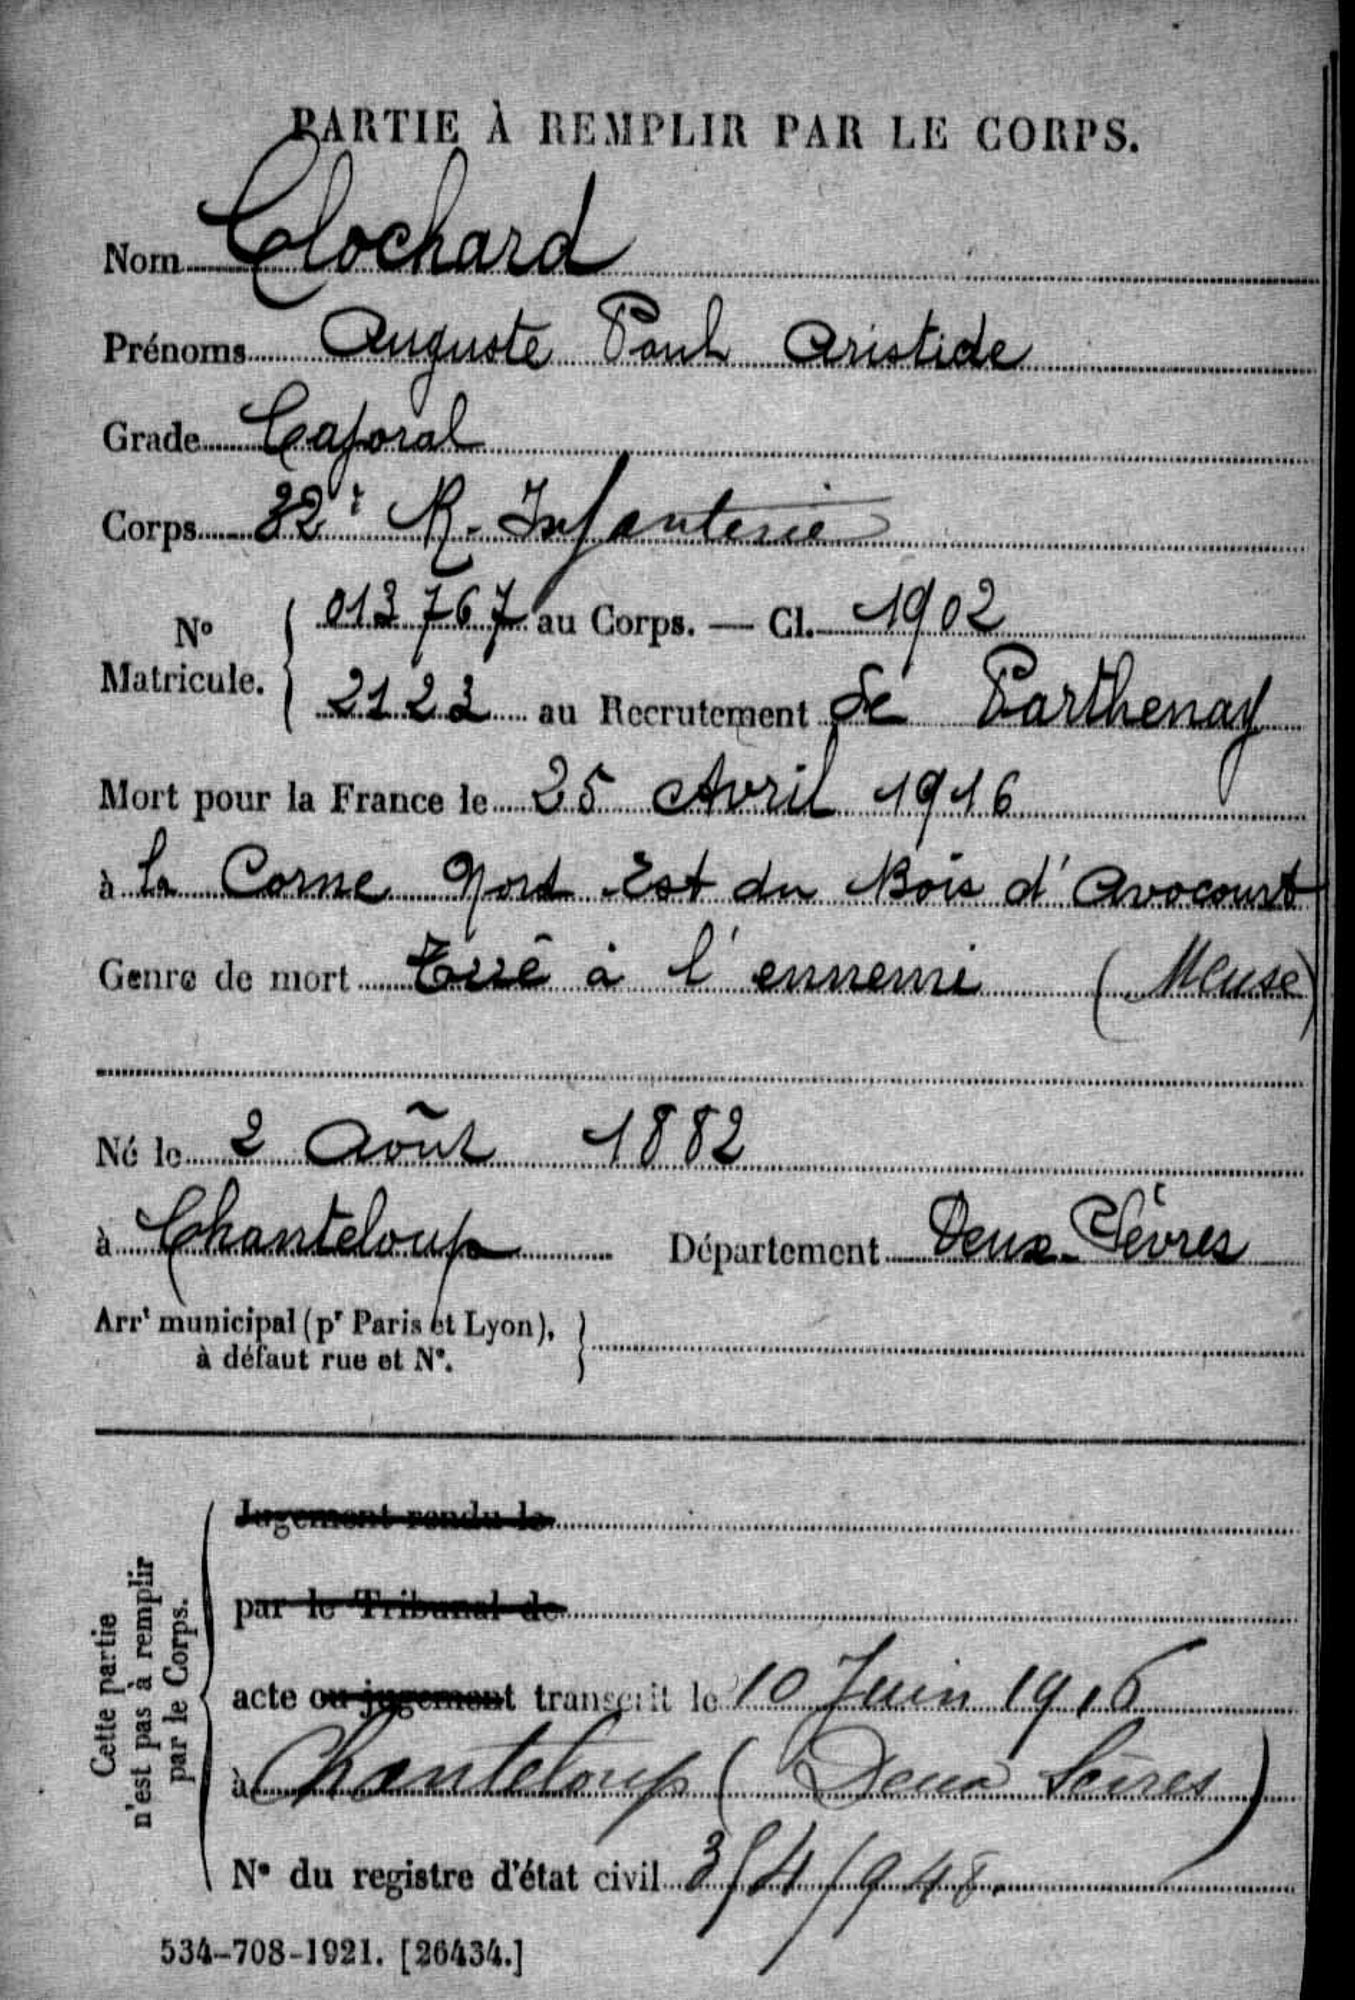 PARTIE À REMPLIR PAR LE CORPS.
Nom Clochard
Prénoms Auguste Paul Aristide
Grade Caporal
Corps 32e R. Infanterie
No Matricule. { 013767 au Corps. — Cl. 1902
2123 au Recrutement de Parthenay
Mort pour la France le 25 Avril 1916
à la Corne Nord Est du Bois d'Avocourt
Genre de mort Tué à l'ennemi (Meuse)
Né le 2 Août 1882
à Chanteloup Département Deux-Sèvres
Arrt municipal (pr Paris et Lyon),
à défaut rue et No.
Cette partie
n'est pas à remplir
par le Corps.
Jugement rendu le
par le Tribunal de
acte ou jugement transcrit le 10 Juin 1916
à Chanteloup (Deux Sèvres)
No du registre d'état civil
534-708-1921. [26434.]